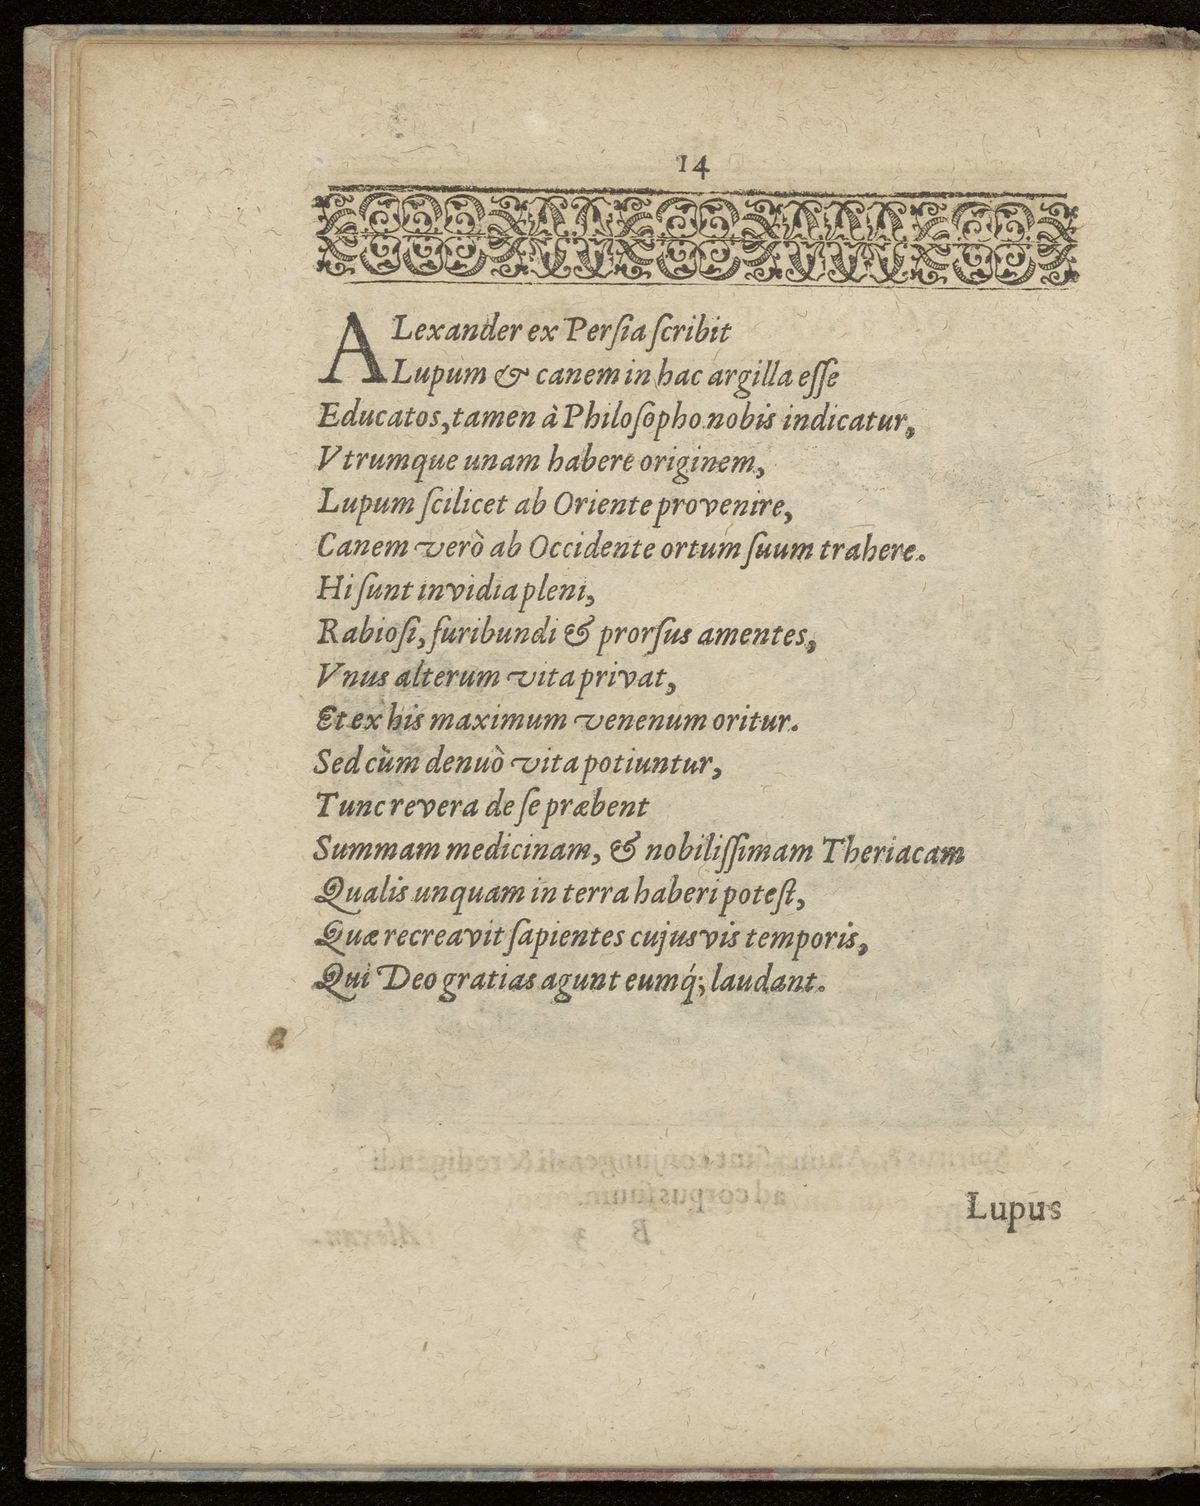 14
ALexander ex Perſia ſcribit
Lupum & canem in hac argilla eſſe
Educatos, tamen à Philoſopho nobis indicatur,
Vtrumque unam habere originem,
Lupum ſcilicet ab Oriente provenire,
Canem verò ab Occidente ortum ſuum trahere.
Hi ſunt invidia pleni,
Rabioſi, furibundi & prorſus amentes,
Vnus alterum vita privat,
Et ex his maximum venenum oritur.
Sed cùm denuò vita potiuntur,
Tunc revera de ſe præbent
Summam medicinam, & nobiliſſimam Theriacam
Qualis unquam in terra haberi poteſt,
Quæ recreavit ſapientes cujusvis temporis,
Qui Deo gratias agunt eumq́; laudant.
Spiritus & Anima ſunt conjungendi & redigendi
ad corpus ſuum.
B 3
Alexan-
Lupus